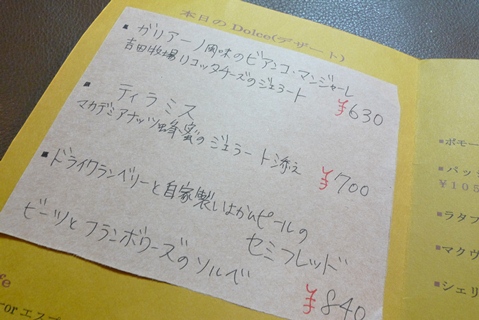 本日の Dolce(デザート)
■ガリアーノ風味のビアンコ・マンジャーレ
吉田牧場リコッタチーズのジェラート
¥630
■ティラミス
マカデミアナッツ蜂蜜のジェラート添え
¥700
■ドライクランベリーと自家製いよかんピールの
セミフレッド
ビーツとフランボワーズのソルベ
¥840
■ポモー
■バッ
¥105
■ラタフ
■マクヴ
■シェリ
or エスプ